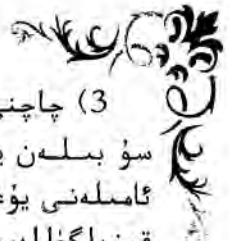 3) چاچنى
سۇ بىلەن ي
ئامىلەنى يۇ